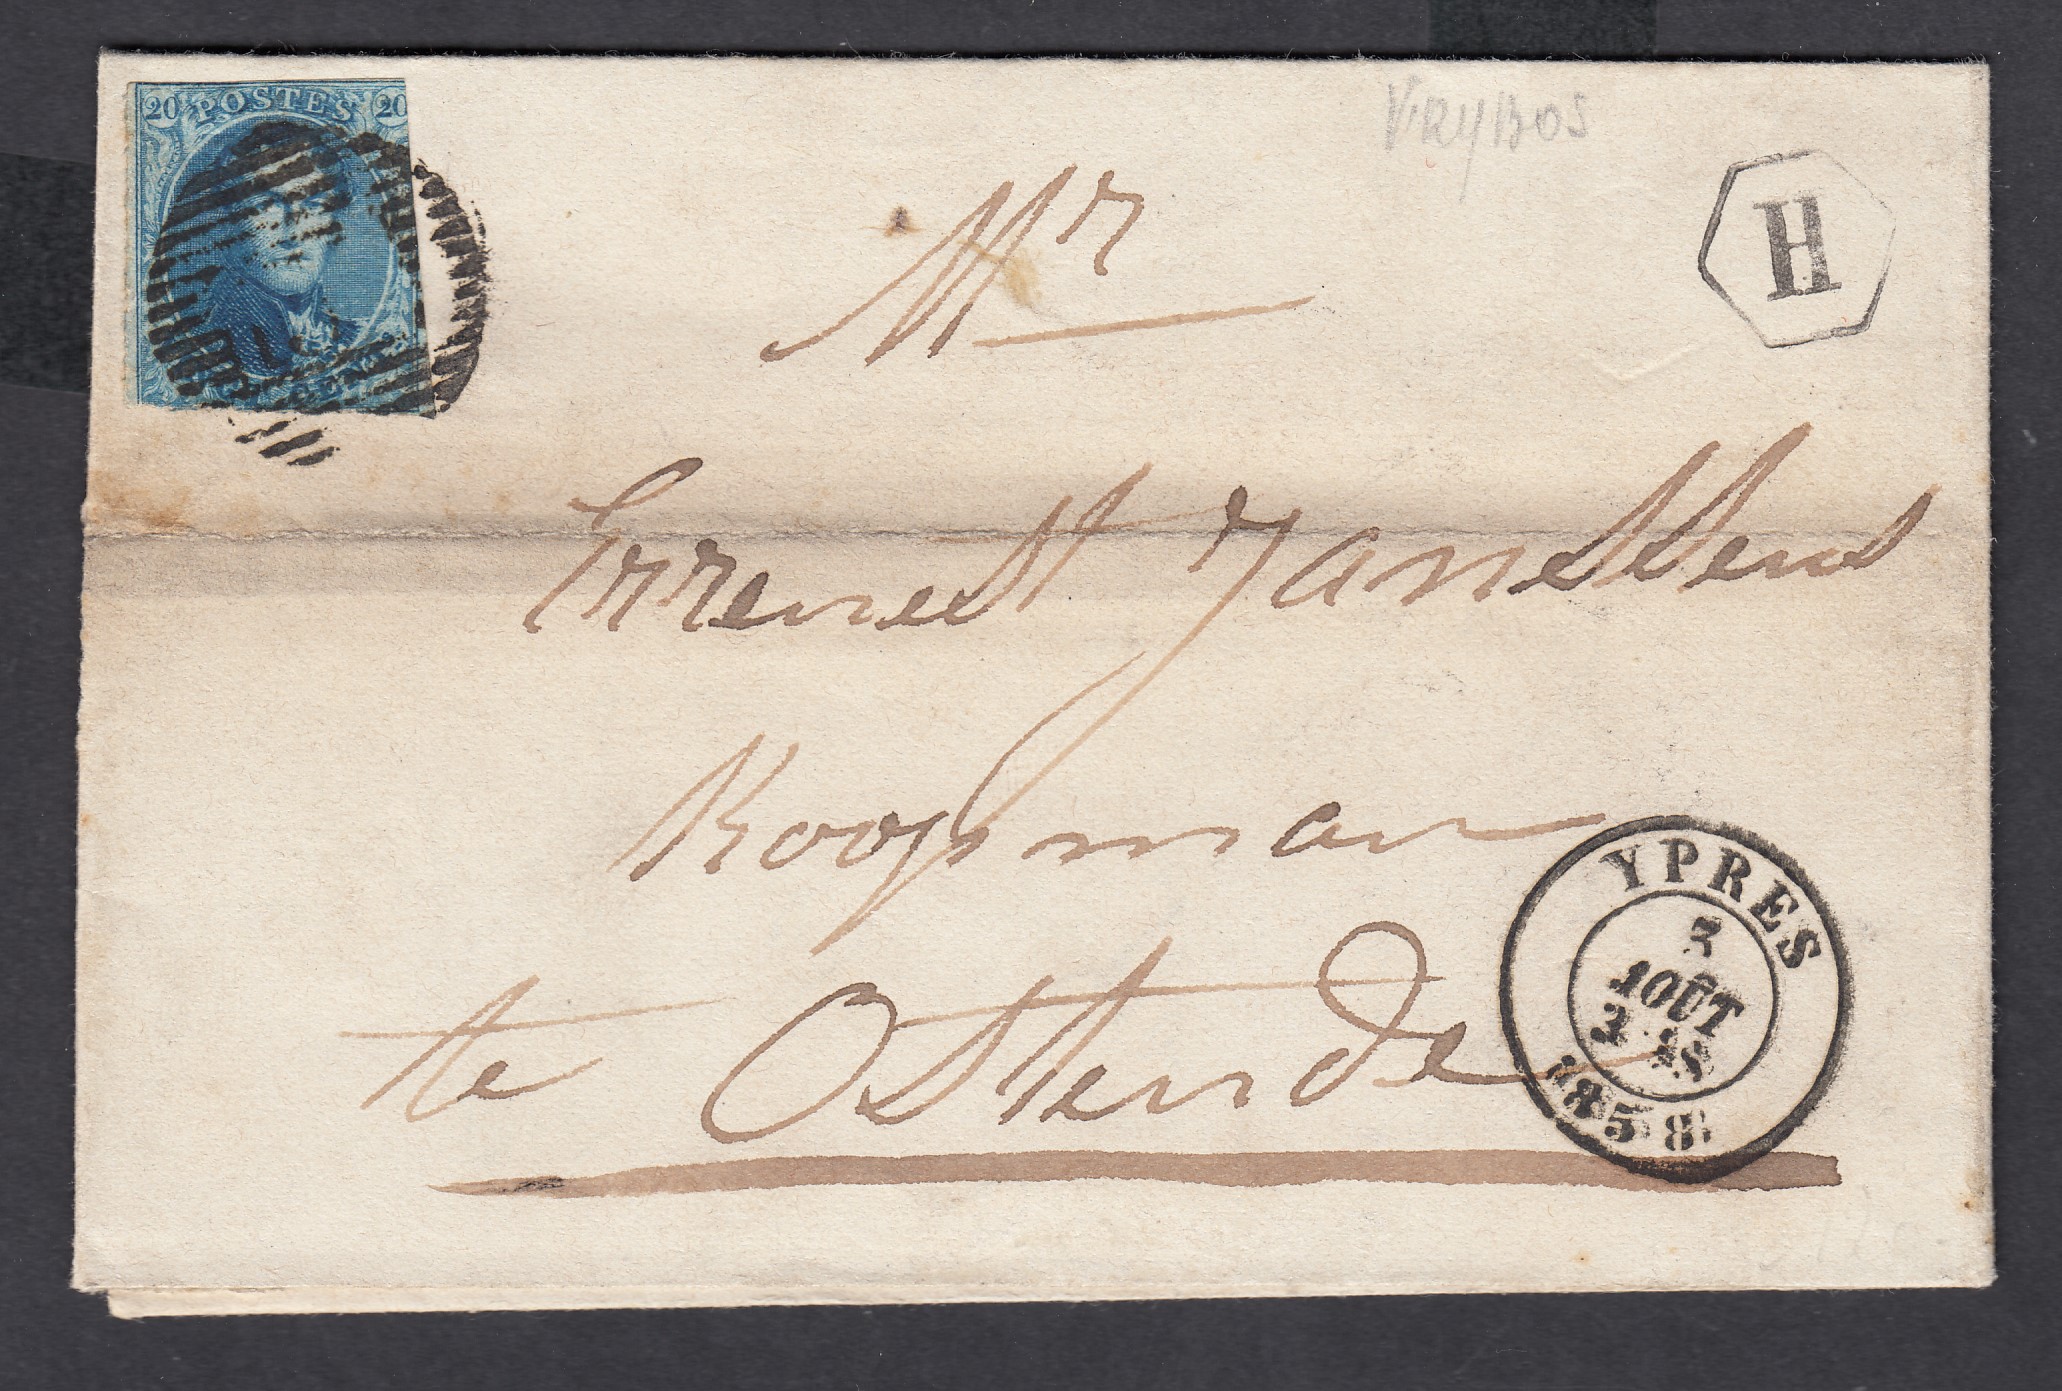 20 POSTES 20
VRYBOS
H
Mr
Errenest Janssens
Koopman
te Ostende
YPRES
3
AOÛT
1858